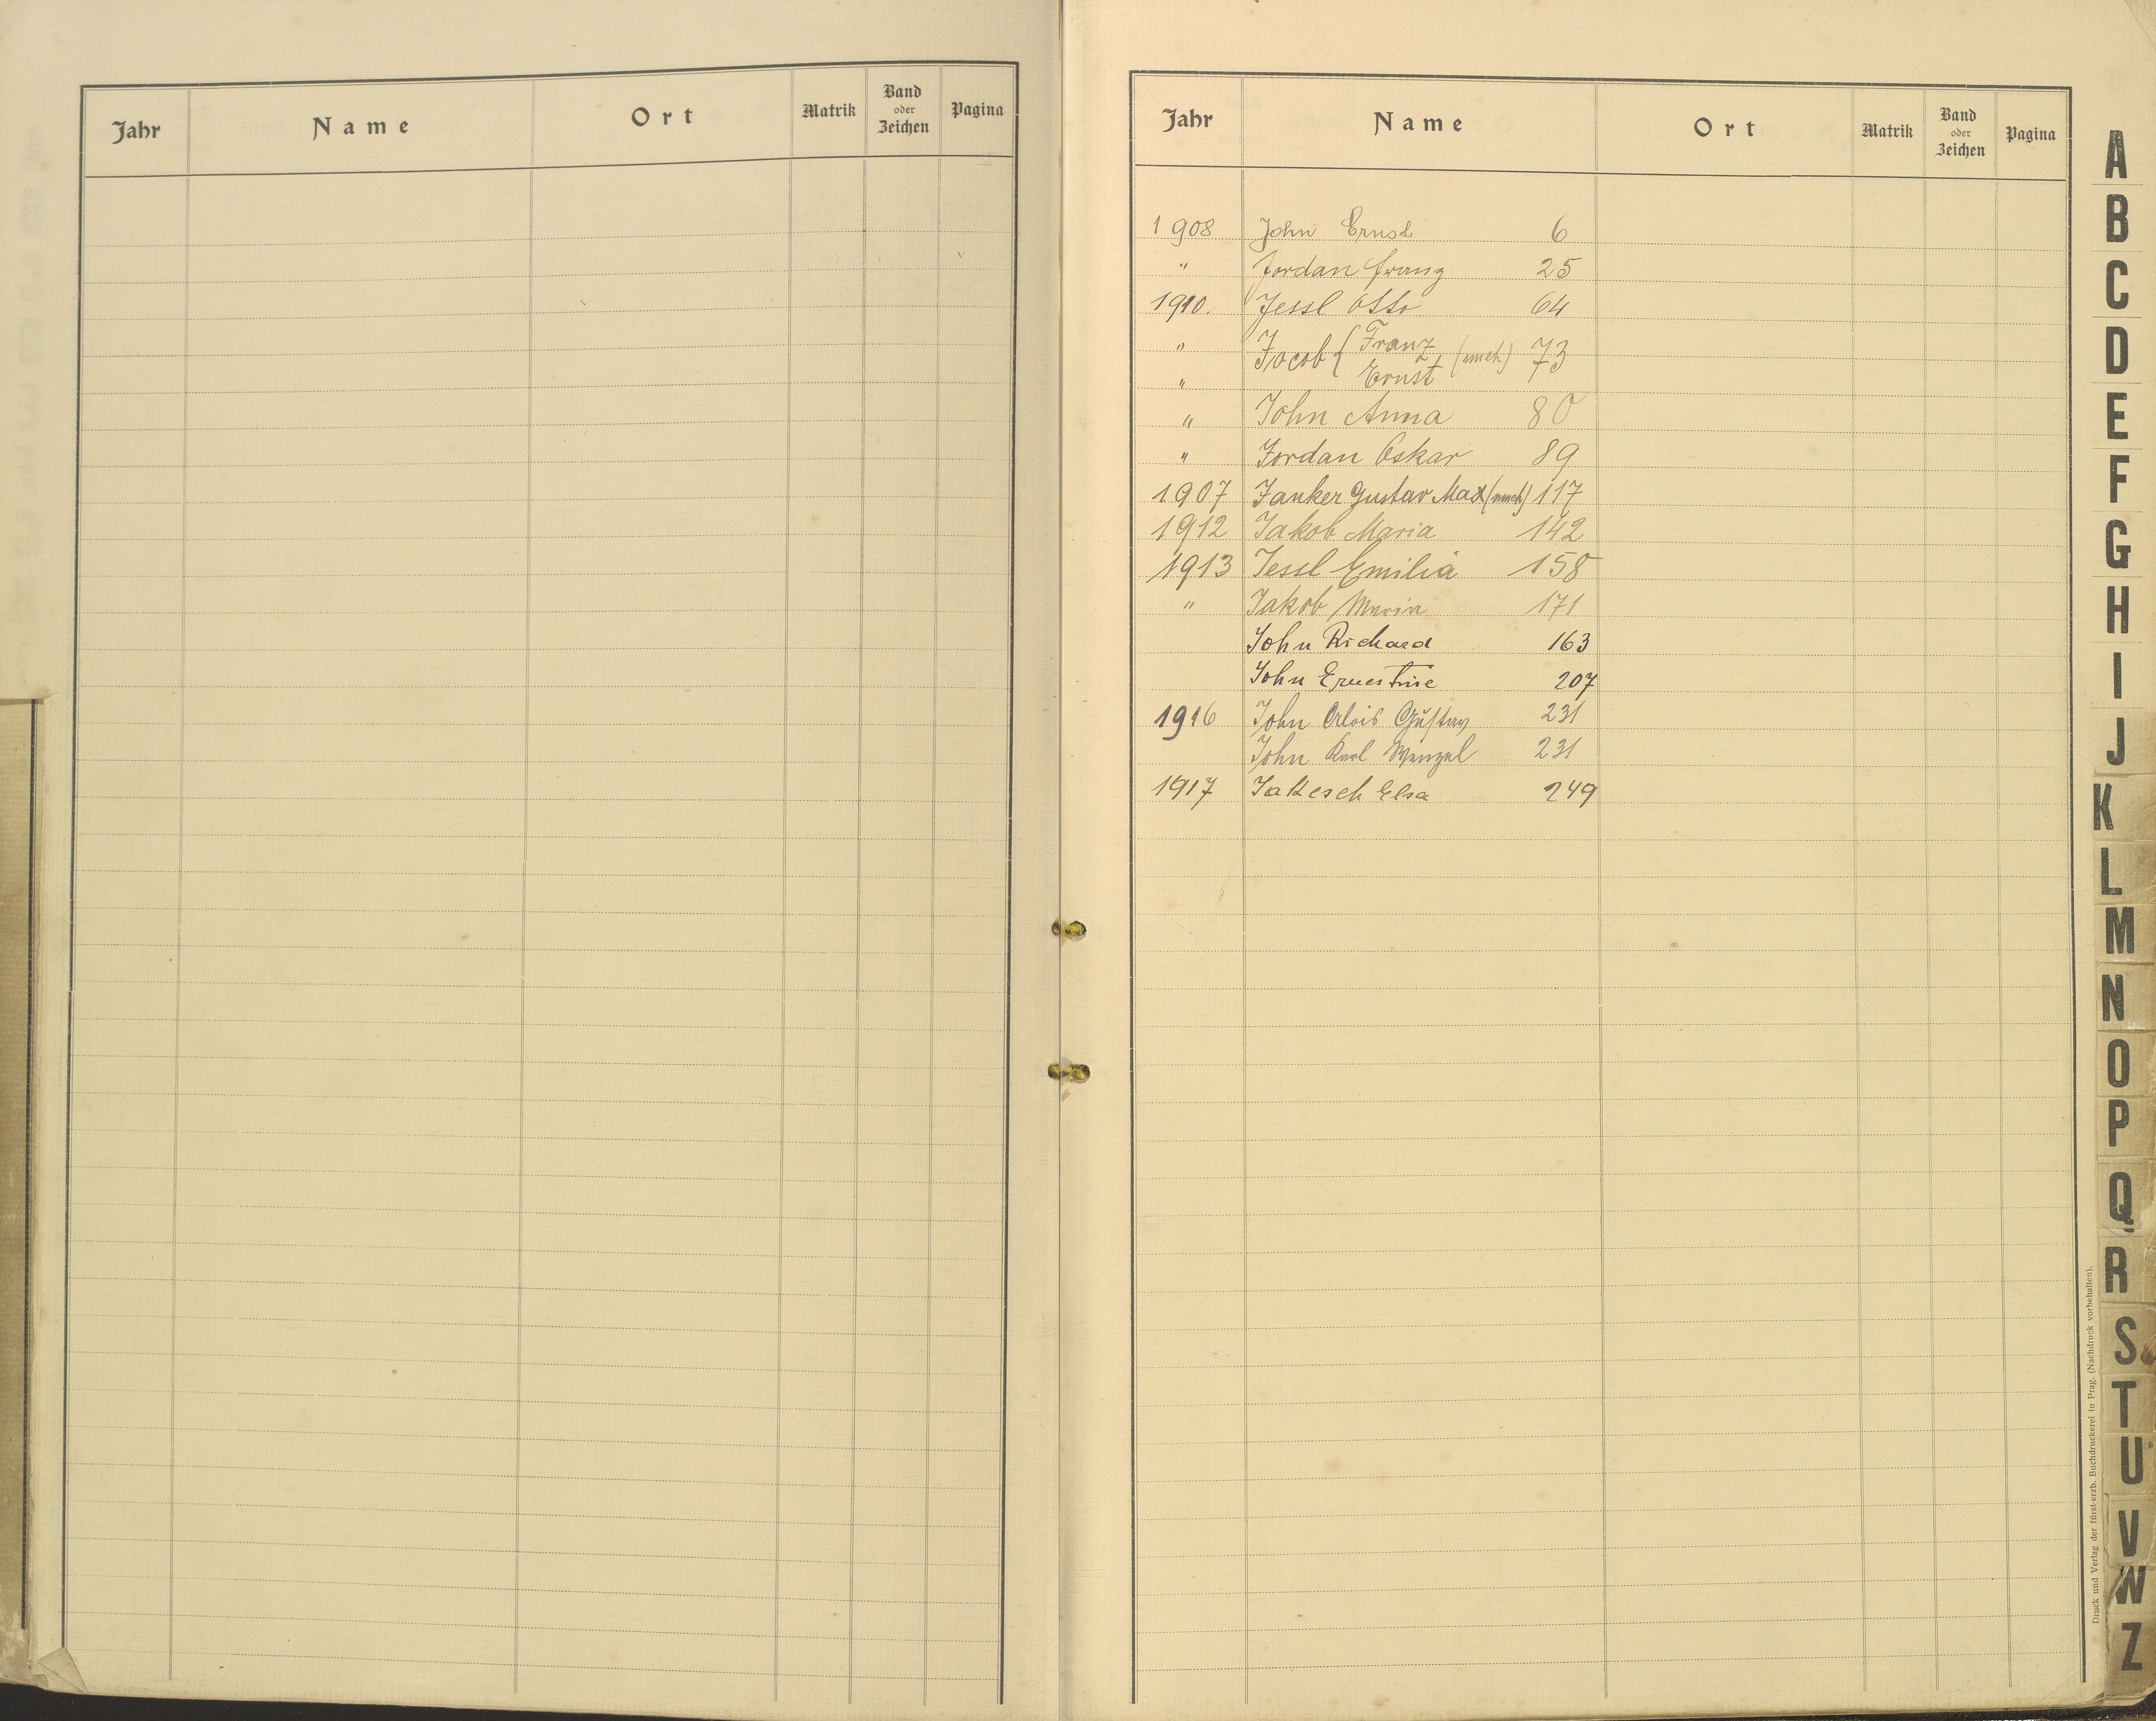 Jahr Name Ort Matrik Band oder Zeichen Pagina
Jahr Name Ort Matrik Band oder Zeichen Pagina
1908 John Ernst 6
" Jordan Franz 25
1910. Jessl Otto 64
" Jacob { Franz (uneh.) 73
" Ernst
" John Anna 80
" Jordan Oskar 89
1907 Janker Gustav Max (uneh.) 117
1912 Jakob Maria 142
1913 Jessl Emilia 158
" Jakob Maria 171
John Richard 163
John Ernestine 207
1916 John Alois Gustav 231
John Karl Wenzel 231
1917 Jakesch Elsa 249
A
B
C
D
E
F
G
H
I
J
K
L
M
N
O
P
Q
R
S
T
U
V
W
Z
Druck und Verlag der fürst-erzb. Buchdruckerei in Prag. (Nachdruck vorbehalten).